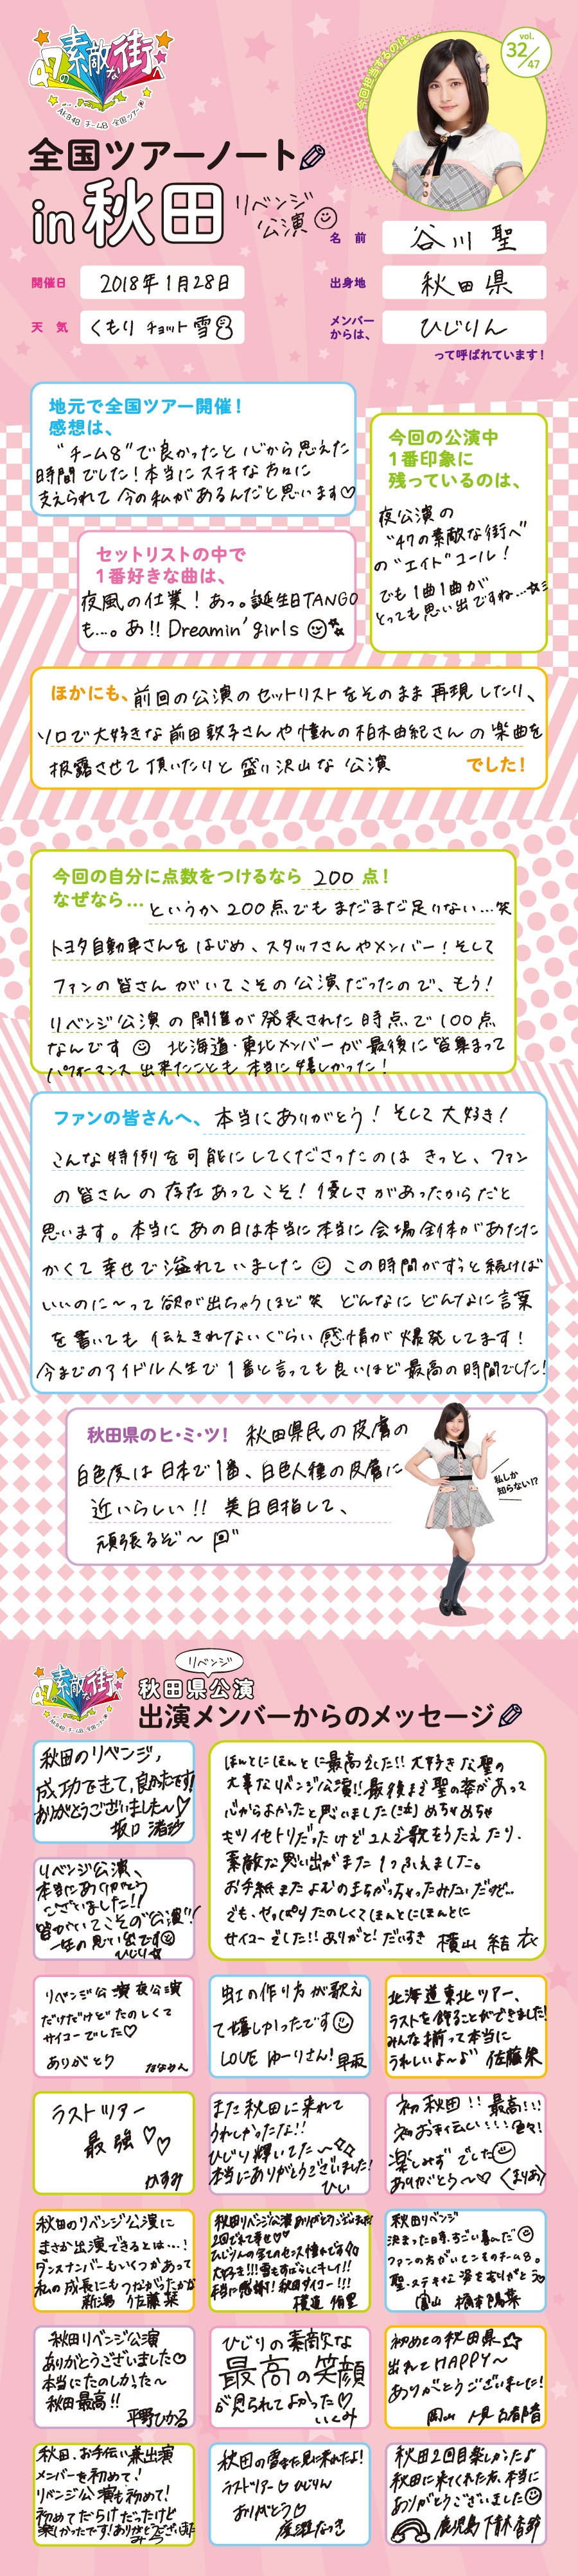 47の素敵な街へ
AKB48 チーム8 全国ツアー
今回担当するのは…
vol.
32/47
全国ツアーノート
in 秋田
リベンジ
公演
名 前
谷川 聖
開催日
2018年1月28日
出身地
秋田県
天 気
くもり チョット 雪
メンバー
からは、
ひじりん
って呼ばれています!
地元で全国ツアー開催!
感想は、
"チーム8"で良かったと心から思えた
時間でした!本当にステキな方々に
支えられて今の私があるんだと思います♡
今回の公演中
1番印象に
残っているのは、
夜公演の
"47の素敵な街へ"
の"エイト"コール!
でも1曲1曲が
とっても思い出ですね…
セットリストの中で
1番好きな曲は、
夜風の仕業!あっ。誕生日TANGO
も…。あ!!Dreamin' girls
ほかにも、前回の公演のセットリストをそのまま再現したり、
ソロで大好きな前田敦子さんや憧れの柏木由紀さんの楽曲を
披露させて頂いたりと盛り沢山な公演 でした!
今回の自分に点数をつけるなら 200 点!
なぜなら… というか200点でもまだまだ足りない…笑
トヨタ自動車さんをはじめ、スタッフさんやメンバー!そして
ファンの皆さんがいてこその公演だったので、もう!
リベンジ公演の開催が発表された時点で100点
なんです 北海道・東北メンバーが最後に皆集まって
パフォーマンス出来たことも本当に嬉しかった!
ファンの皆さんへ、本当にありがとう!そして大好き!
こんな特例を可能にしてくださったのはきっと、ファン
の皆さんの存在あってこそ!優しさがあったからだと
思います。本当にあの日は本当に本当に会場全体があたた
かくて幸せで溢れていました この時間がずっと続けば
いいのに〜って欲が出ちゃうほど笑 どんなにどんなに言葉
を書いても伝えきれないぐらい感情が爆発してます!
今までのアイドル人生で1番と言っても良いほど最高の時間でした!
秋田県のヒ・ミ・ツ! 秋田県民の皮膚の
白色度は日本で1番、白色人種の皮膚に
近いらしい!!美白目指して、
頑張るぞ〜
私しか
知らない!?
47の素敵な街へ
AKB48 チーム8 全国ツアー
リベンジ
秋田県公演
出演メンバーからのメッセージ
秋田のリベンジ、
成功できて、良かったです!
ありがとうございました〜♡
坂口 渚沙
ほんとにほんとに最高でした!!大好きな聖の
大事なリベンジ公演!!最後まで聖の姿があって
心からよかったと思いました(泣)めちゃめちゃ
キツイセトリだったけど2人で歌をうたえたり、
素敵な思い出がまた1つふえました。
お手紙またよむのまちがっちゃったみたいだぜ…
でも、やっぱりたのしくてほんとにほんとに
サイコーでした!!ありがと!だいすき 横山 結衣
リベンジ公演、
本当にありがとう
ございました!!
皆がいてこその"公演"!!
一生の思い出です
ひじり☆
リベンジ公演夜公演
だけだけどたのしくて
サイコーでした♡
ありがとう ななめん
虹の作り方が歌え
て嬉しかったです
LOVE ゆーりさん!早坂
北海道東北ツアー、
ラストを飾ることができました!
みんな揃って本当に
うれしいよ〜 佐藤朱
ラストツアー
最強♡♡
かすみ
また秋田に来れて
うれしかったな!!
ひじり輝いてた〜
本当にありがとうございました!
ひい
初秋田!!最高!!!
初お手伝い!!!色々!
楽しみずでした
ありがとう〜♡ くまりあ
秋田のリベンジ公演に
まさか出演できるとは…!
ダンスナンバーもいくつかあって
私の成長にもつながったかな
新潟 佐藤栞
秋田リベンジ公演ありがとうございました
2回できて幸せ♡♡
大好き!!!雪もすばらしくキレイ!!
本当に感謝!秋田サイコー!!!
横道 侑里
秋田リベンジ
決まった時、すごい喜んだ
ファンの方がいてこそのチーム8。
聖、ステキな姿をありがとう
富山 橋本陽菜
秋田リベンジ公演
ありがとうございました♡
本当にたのしかた〜
秋田最高!!
平野ひかる
ひじりの素敵な
最高の笑顔
が見られてよかった♡
いくみ
初めての秋田県☆
出れてHAPPY〜
ありがとうございました!
岡山 人見古都音
秋田、お手伝い兼出演
メンバーを初めて!
リベンジ公演も初めて!
初めてだらけだったけど
楽しかったです!ありがとうございました
みう
秋田の雪をまた見に来れたよ!
ラストツアー♡ひじりん
ありがとう♡
廣瀬なつき
秋田2回目楽しかったよ
秋田に来てくれた方、本当に
ありがとうございました
鹿児島 下青木香鈴